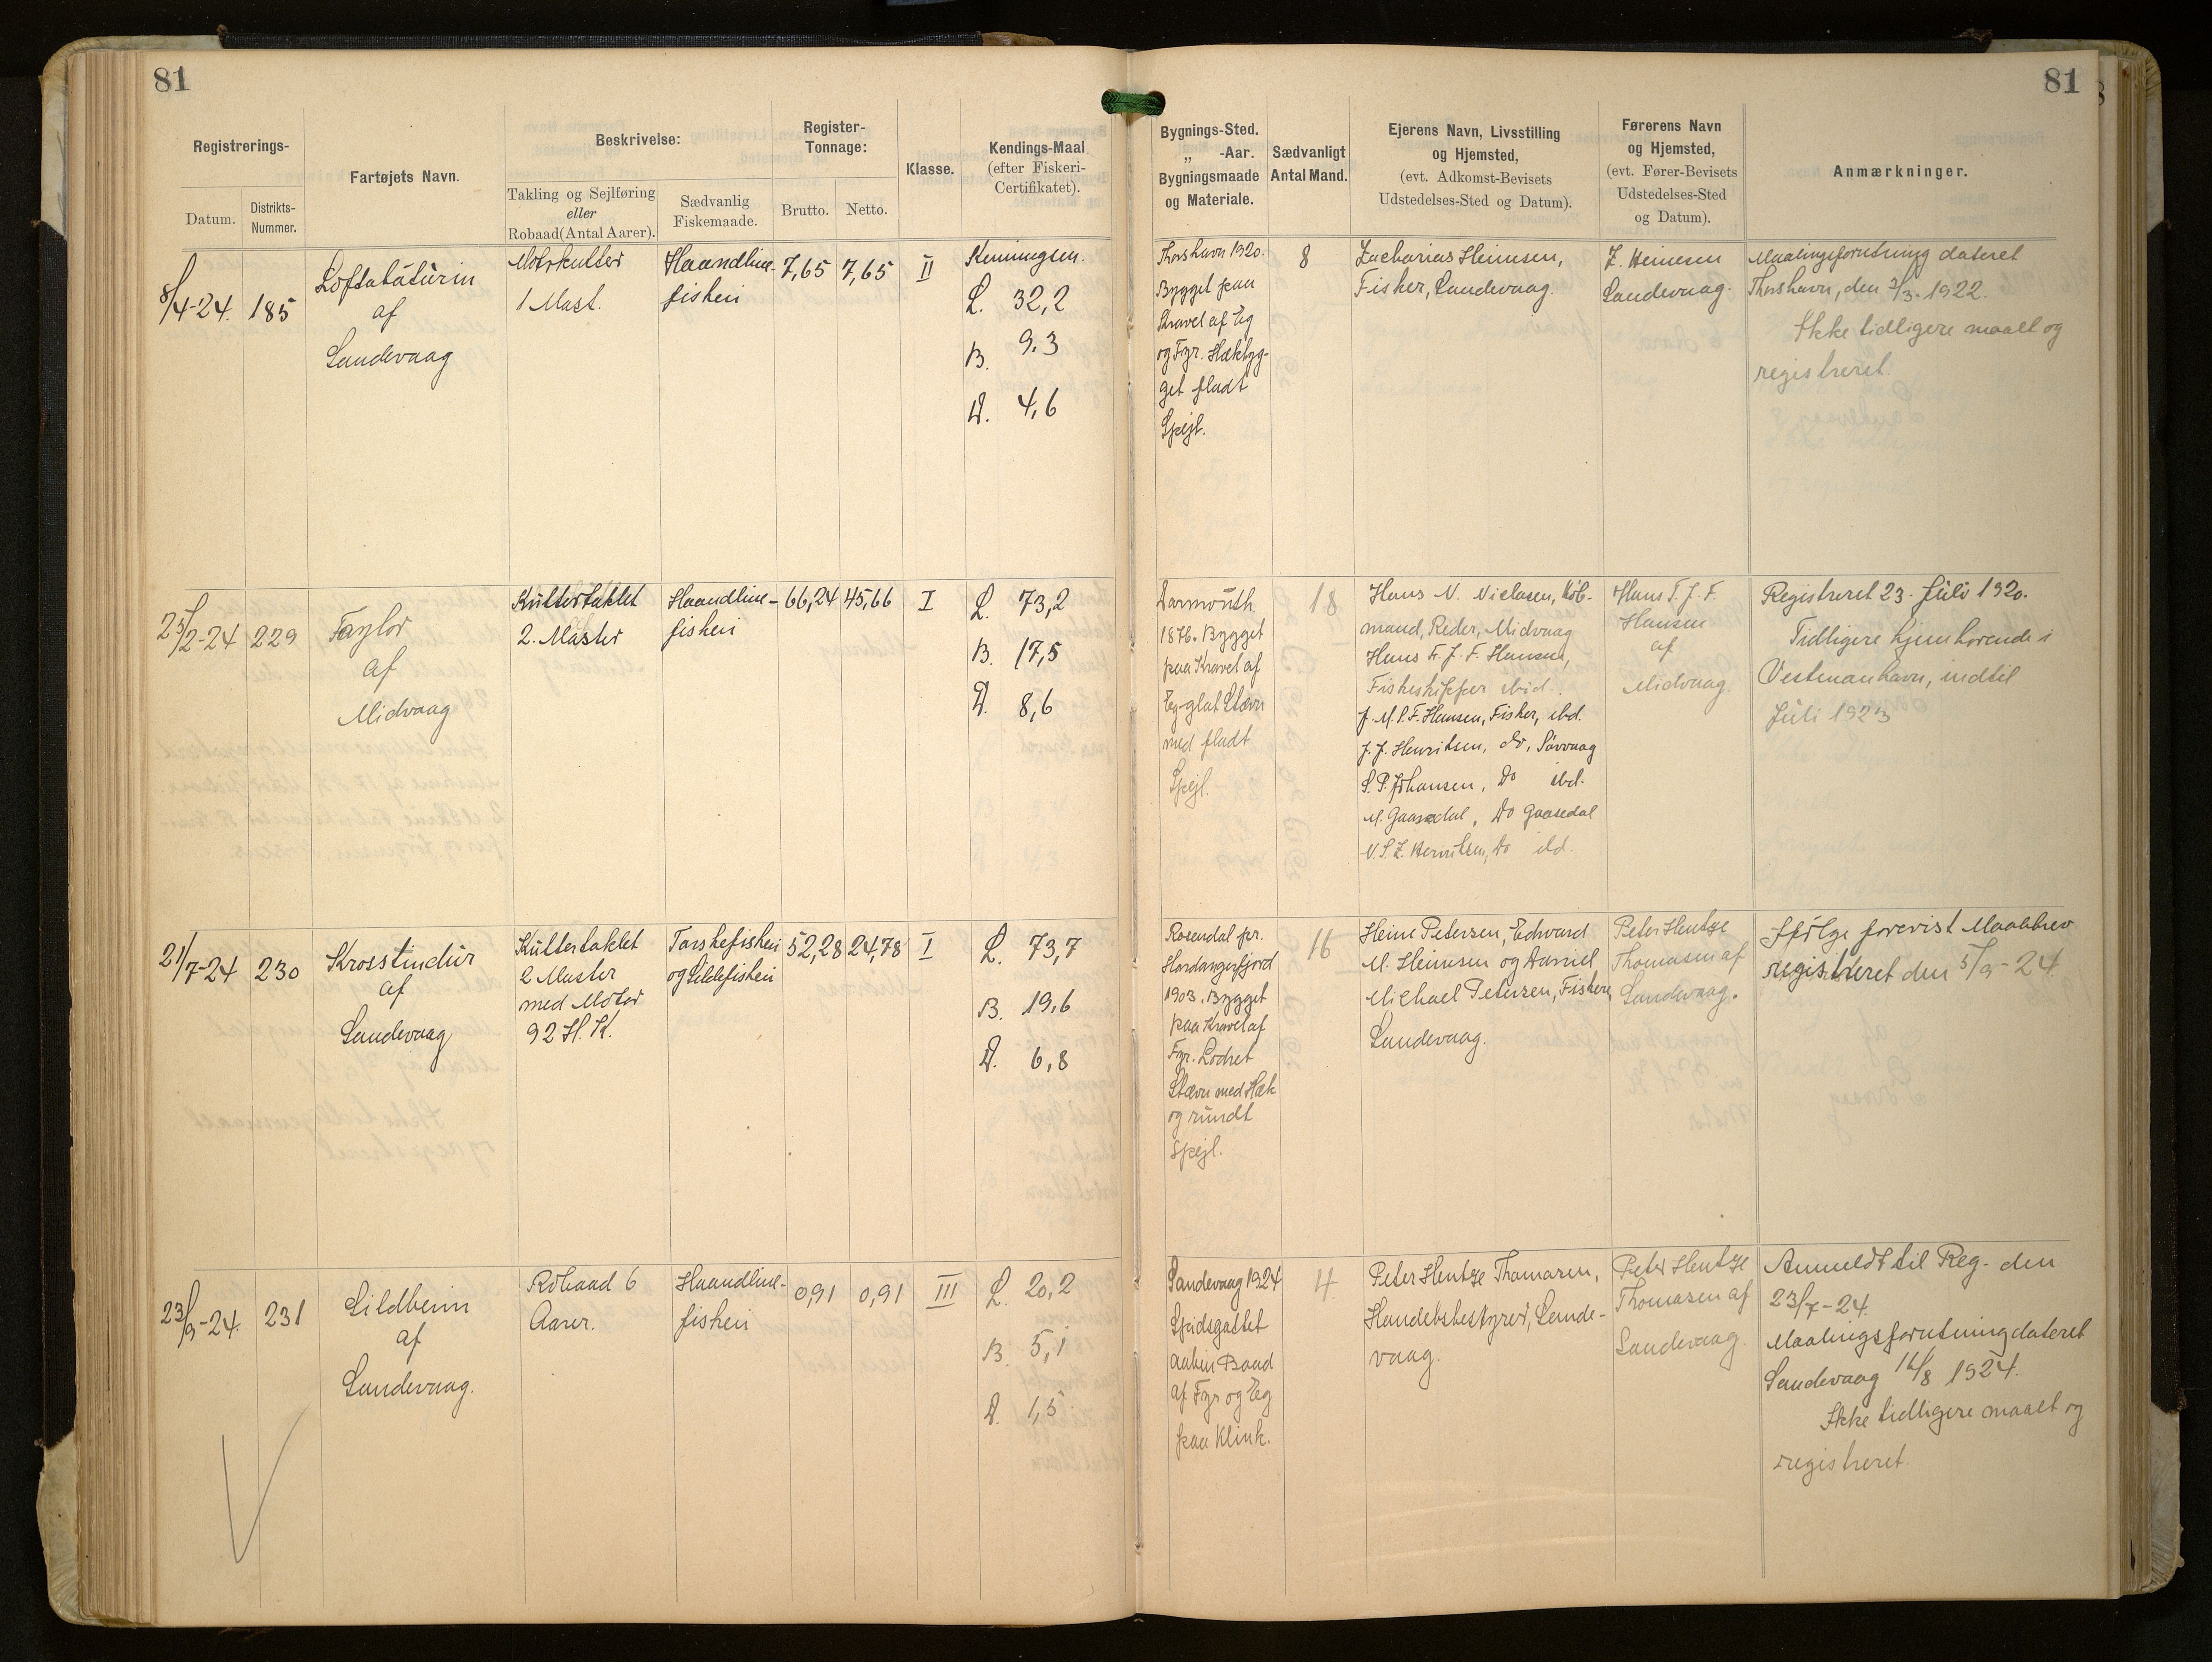 81
81
Registrerings-
Datum.
Distrikts-
Nummer.
Fartøjets Navn.
Beskrivelse:
Takling og Sejlføring
eller
Robaad (Antal Aarer).
Sædvanlig
Fiskemaade.
Register-
Tonnage:
Brutto.
Netto.
Klasse.
Kendings-Maal
(efter Fiskeri-
Certifikatet).
Bygnings-Sted.
„ -Aar.
Bygningsmaade
og Materiale.
Sædvanligt
Antal Mand.
Ejerens Navn, Livsstilling
og Hjemsted,
(evt. Adkomst-Bevisets
Udstedelses-Sted og Datum).
Førerens Navn
og Hjemsted,
(evt. Fører-Bevisets
Udstedelses-Sted
og Datum).
Anmærkninger.
8/4-24.
185
Loftabáturin
af
Sandevaag
Motorkutter
1 Mast.
Haandline-
fisheri
7,65
7,65
II
Kenningsm.
L. 32,2
B. 9,3
D. 4,6
Thorshavn 1920.
Bygget paa
Kravel af Eg
og Fyr. Hækbyg-
get fladt
Spejl.
8
Zacharias Heinesen,
Fisker, Sandevaag.
Z. Heinesen
Sandevaag.
Maalingsforretning dateret
Thorshavn, den 2/3. 1922.
Ikke tidligere maalt og
registreret.
25/2-24
229
Taylor
af
Midvaag
Kuttertaklet
2. Master
Haandline-
fisheri
66,24
45,66
I
L. 73,2
B. 17,5
D. 8,6
Darmouth.
1876. Bygget
paa Kravel af
Eg-glat Stævn
med fladt
Spejl.
18
Hans N. Niclasen, Køb-
mand, Reder, Midvaag
Hans F. J. F. Hansen,
Fiskeskipper ibid.
J. M. P. F. Hansen, Fisker, ibd.
J. J. Henriksen, do, Sørvaag
S. P. Johansen, Do ibd.
M. Gaasedal, Do Gaasedal
N. S. Z. Henriksen, Do ibd.
Hans F. J. F.
Hansen
af
Midvaag.
Registreret 23. Juli 1920.
Tidligere hjemhørende i
Vestmanhavn, indtil
Juli 1923
21/7-24
230
Krosstindur
af
Sandevaag
Kuttertaklet
2 Master
med Motor
92 H. K.
Torskefisheri
og Sildefisheri
52,28
24,78
I
L. 73,7
B. 19,6
D. 6,8
Rosendal pr.
Hardangerfjord
1903. Bygget
paa Kravel af
Fyr. Lodret
Stævn med Hæk
og rundt
Spejl.
16
Heine Petersen, Edvard
M. Heinesen og Daniel
Michael Petersen, Fiskere,
Sandevaag.
Peter Hentze
Thomasen af
Sandevaag.
Ifølge forevist Maalebrev
registreret den 5/9-24.
23/9-24.
231
Sildberin
af
Sandevaag.
Robaad 6
Aarer.
Haandline-
fisheri
0,91
0,91
III
L. 20,2
B. 5,1
D. 1,5
Sandevaag 1924
Spidsgattet
aaben Baad
af Fyr og Eg
paa Klink.
4
Peter Hentze Thomasen,
Handelsbestyrer, Sande-
vaag.
Peter Hentze
Thomasen af
Sandevaag.
Anmeldt til Reg. den
23/7-24.
Maalingsforretning dateret
Sandevaag 16/8 1924.
Ikke tidligere maalt og
registreret.